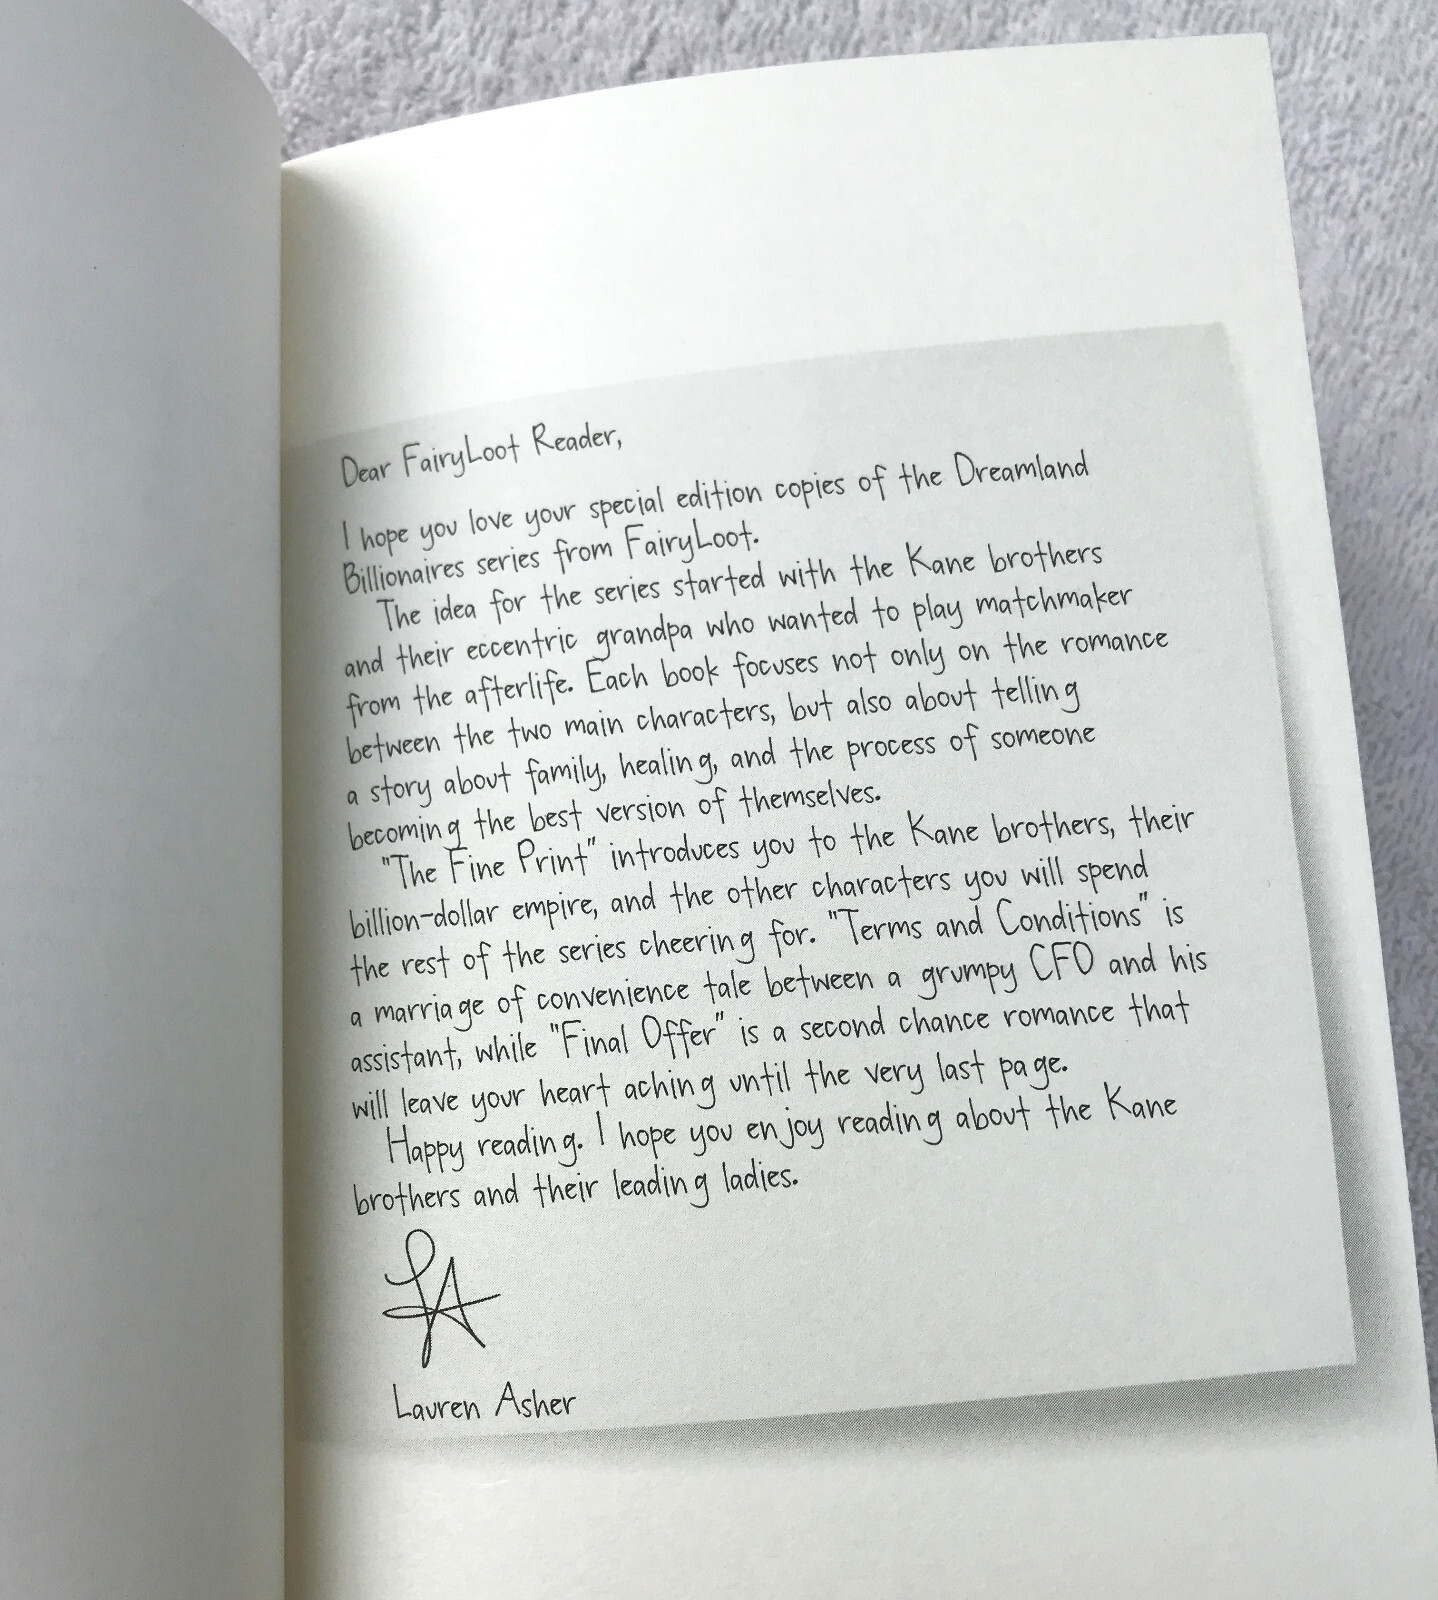 Dear FairyLoot Reader,
I hope you love your special edition copies of the Dreamland
Billionaires series from FairyLoot.
The idea for the series started with the Kane brothers
and their eccentric grandpa who wanted to play matchmaker
from the afterlife. Each book focuses not only on the romance
between the two main characters, but also about telling
a story about family, healing, and the process of someone
becoming the best version of themselves.
"The Fine Print" introduces you to the Kane brothers, their
billion-dollar empire, and the other characters you will spend
the rest of the series cheering for. "Terms and Conditions" is
a marriage of convenience tale between a grumpy CFO and his
assistant, while "Final Offer" is a second chance romance that
will leave your heart aching until the very last page.
Happy reading. I hope you enjoy reading about the Kane
brothers and their leading ladies.
LA
Lauren Asher